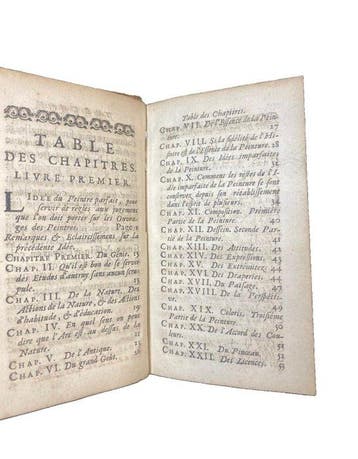 TABLE
DES CHAPITRES.
LIVRE PREMIER.
L'IDÉE du Peintre parfait, pour
servir de règle aux jugemens
que l'on doit porter sur les Ouvra-
ges des Peintres. Page 1
Remarques & Eclaircissemens sur la
précédente Idée.
CHAPITRE PREMIER. Du Génie.
CHAP. II. Qu'il est bon de se servir
des Etudes d'autruy sans aucun scrupule.
CHAP. III. De la Nature. Des
Actions de la Nature, & des Actions
d'habitude, & d'éducation.
CHAP. IV. En quel sens on peut
dire que l'Art est au dessus de la
Nature.
CHAP. V. De l'Antique.
CHAP. VI. Du grand Goût.
Table des Chapitres.
CHAP. VII. De l'Essence de la Pein-
ture. 27
CHAP. VIII. Si la fidélité de l'Hi-
stoire est de l'Essence de la Peinture. 28
CHAP. IX. Des Idées imparfaites
de la Peinture.
CHAP. X. Comment les restes de l'I-
dée imparfaite de la Peinture se sont
conservez depuis son rétablissement dans
l'esprit de plusieurs.
CHAP. XI. Composition. Première
Partie de la Peinture. 40
CHAP. XII. Dessein. Seconde Par-
tie de la Peinture.
CHAP. XIII. Des Attitudes.
CHAP. XIV. Des Expressions.
CHAP. XV. Des Extremitez.
CHAP. XVI. Des Draperies.
CHAP. XVII. Du Païsage.
CHAP. XVIII. De la Perspecti-
ve. 49
CHAP. XIX. Coloris. Troisième
Partie de la Peinture. 50
CHAP. XX. De l'Accord des Cou-
leurs.
CHAP. XXI. Du Pinceau.
CHAP. XXII. Des Licences.